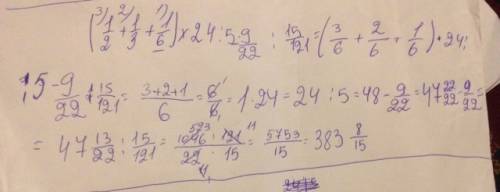 (³⁾1/2 + ²⁾1/3 + ¹⁾1/6) × 24 : 5 - 9/22 : 15/121 = (3/6 + 2/6 + 1/6) · 24 :
: 5 - 9/22 : 15/121 = 3+2+1/6 = 6/6 = 1 · 24 = 24 : 5 = 48 - 9/22 = 47 22/22 - 9/22 =
= 47 13/22 : 15/121 = · 121 11/22 · 15 = 5753/15 = 383 8/15